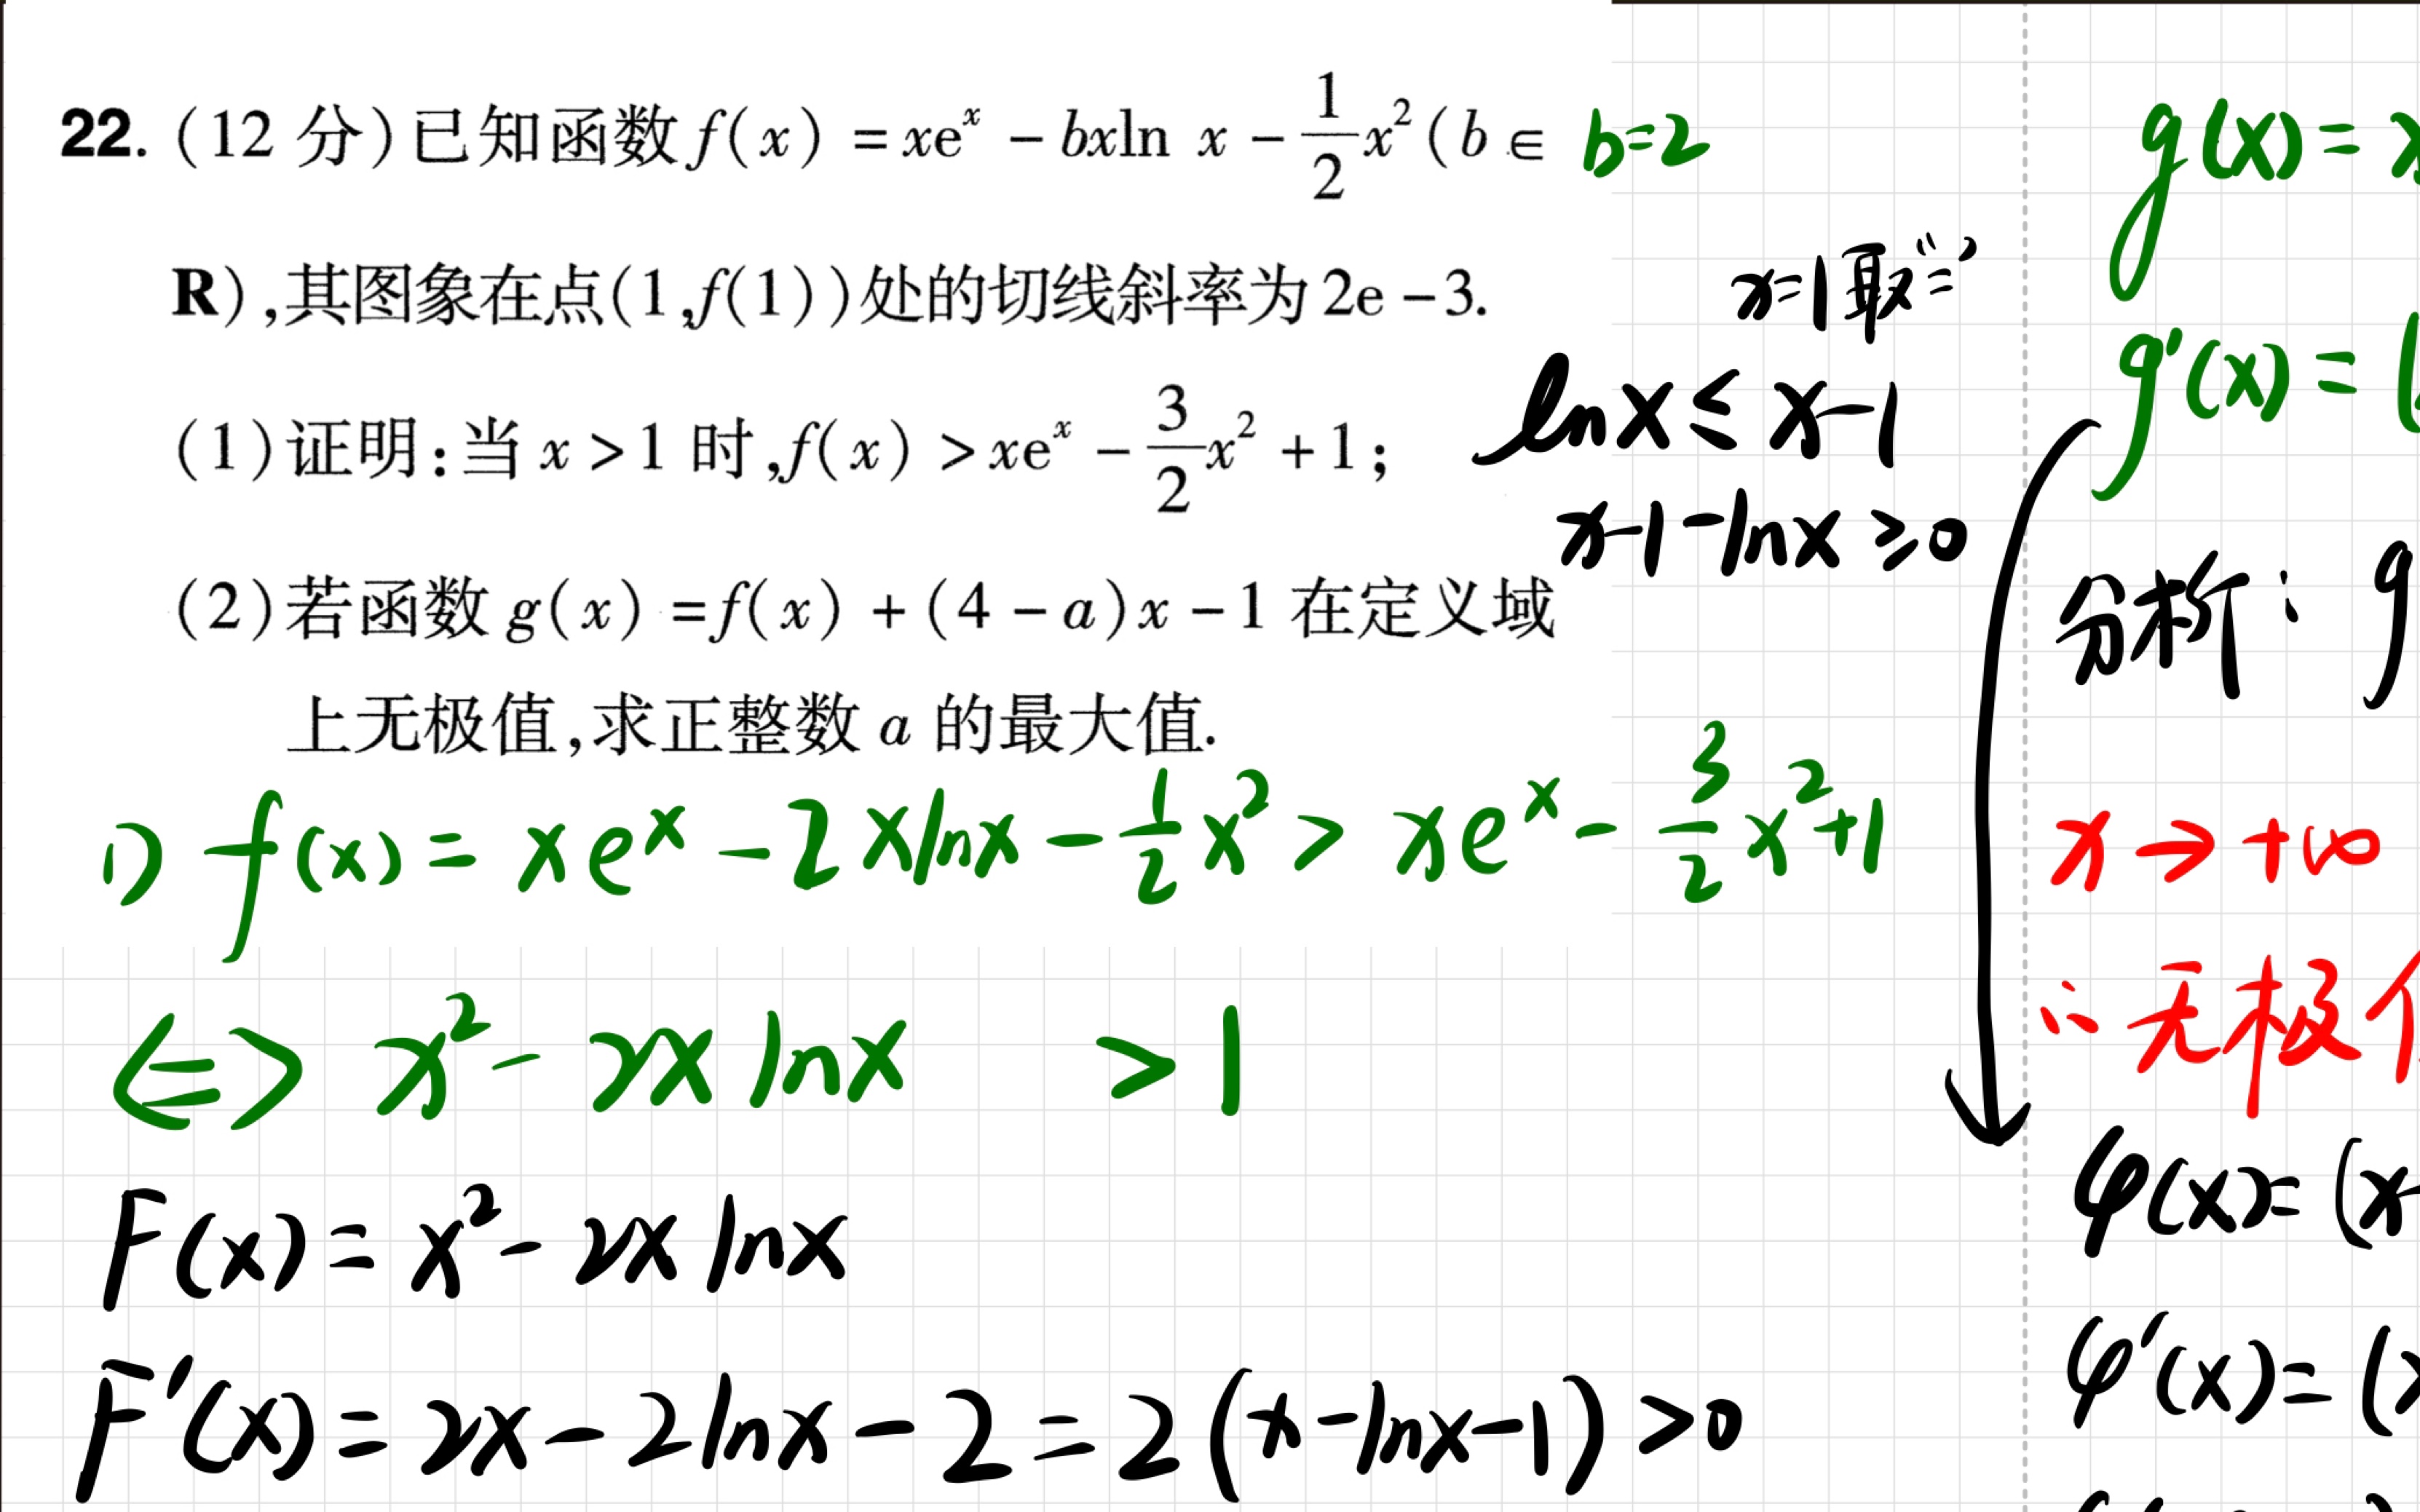 22. (12 分)已知函数 f(x) = xeˣ - bxln x - 1/2 x² (b ∈
R),其图象在点(1,f(1))处的切线斜率为 2e - 3.
(1)证明:当 x > 1 时,f(x) > xeˣ - 3/2 x² + 1;
(2)若函数 g(x) = f(x) + (4 - a)x - 1 在定义域
上无极值,求正整数 a 的最大值.
b=2
x=1取“=”
lnx ≤ x-1
x-1-lnx ≥0
1) f(x) = xeˣ - 2xlnx - 1/2 x² > xeˣ - 3/2 x²+1
<=> x² - 2x lnx > 1
F(x) = x² - 2x lnx
F'(x) = 2x - 2lnx - 2 = 2(x-lnx-1) >0
g(x) =
g'(x) = (
分析: g
x → +∞
∴ 无极
φ(x)= (x-
φ'(x)= (